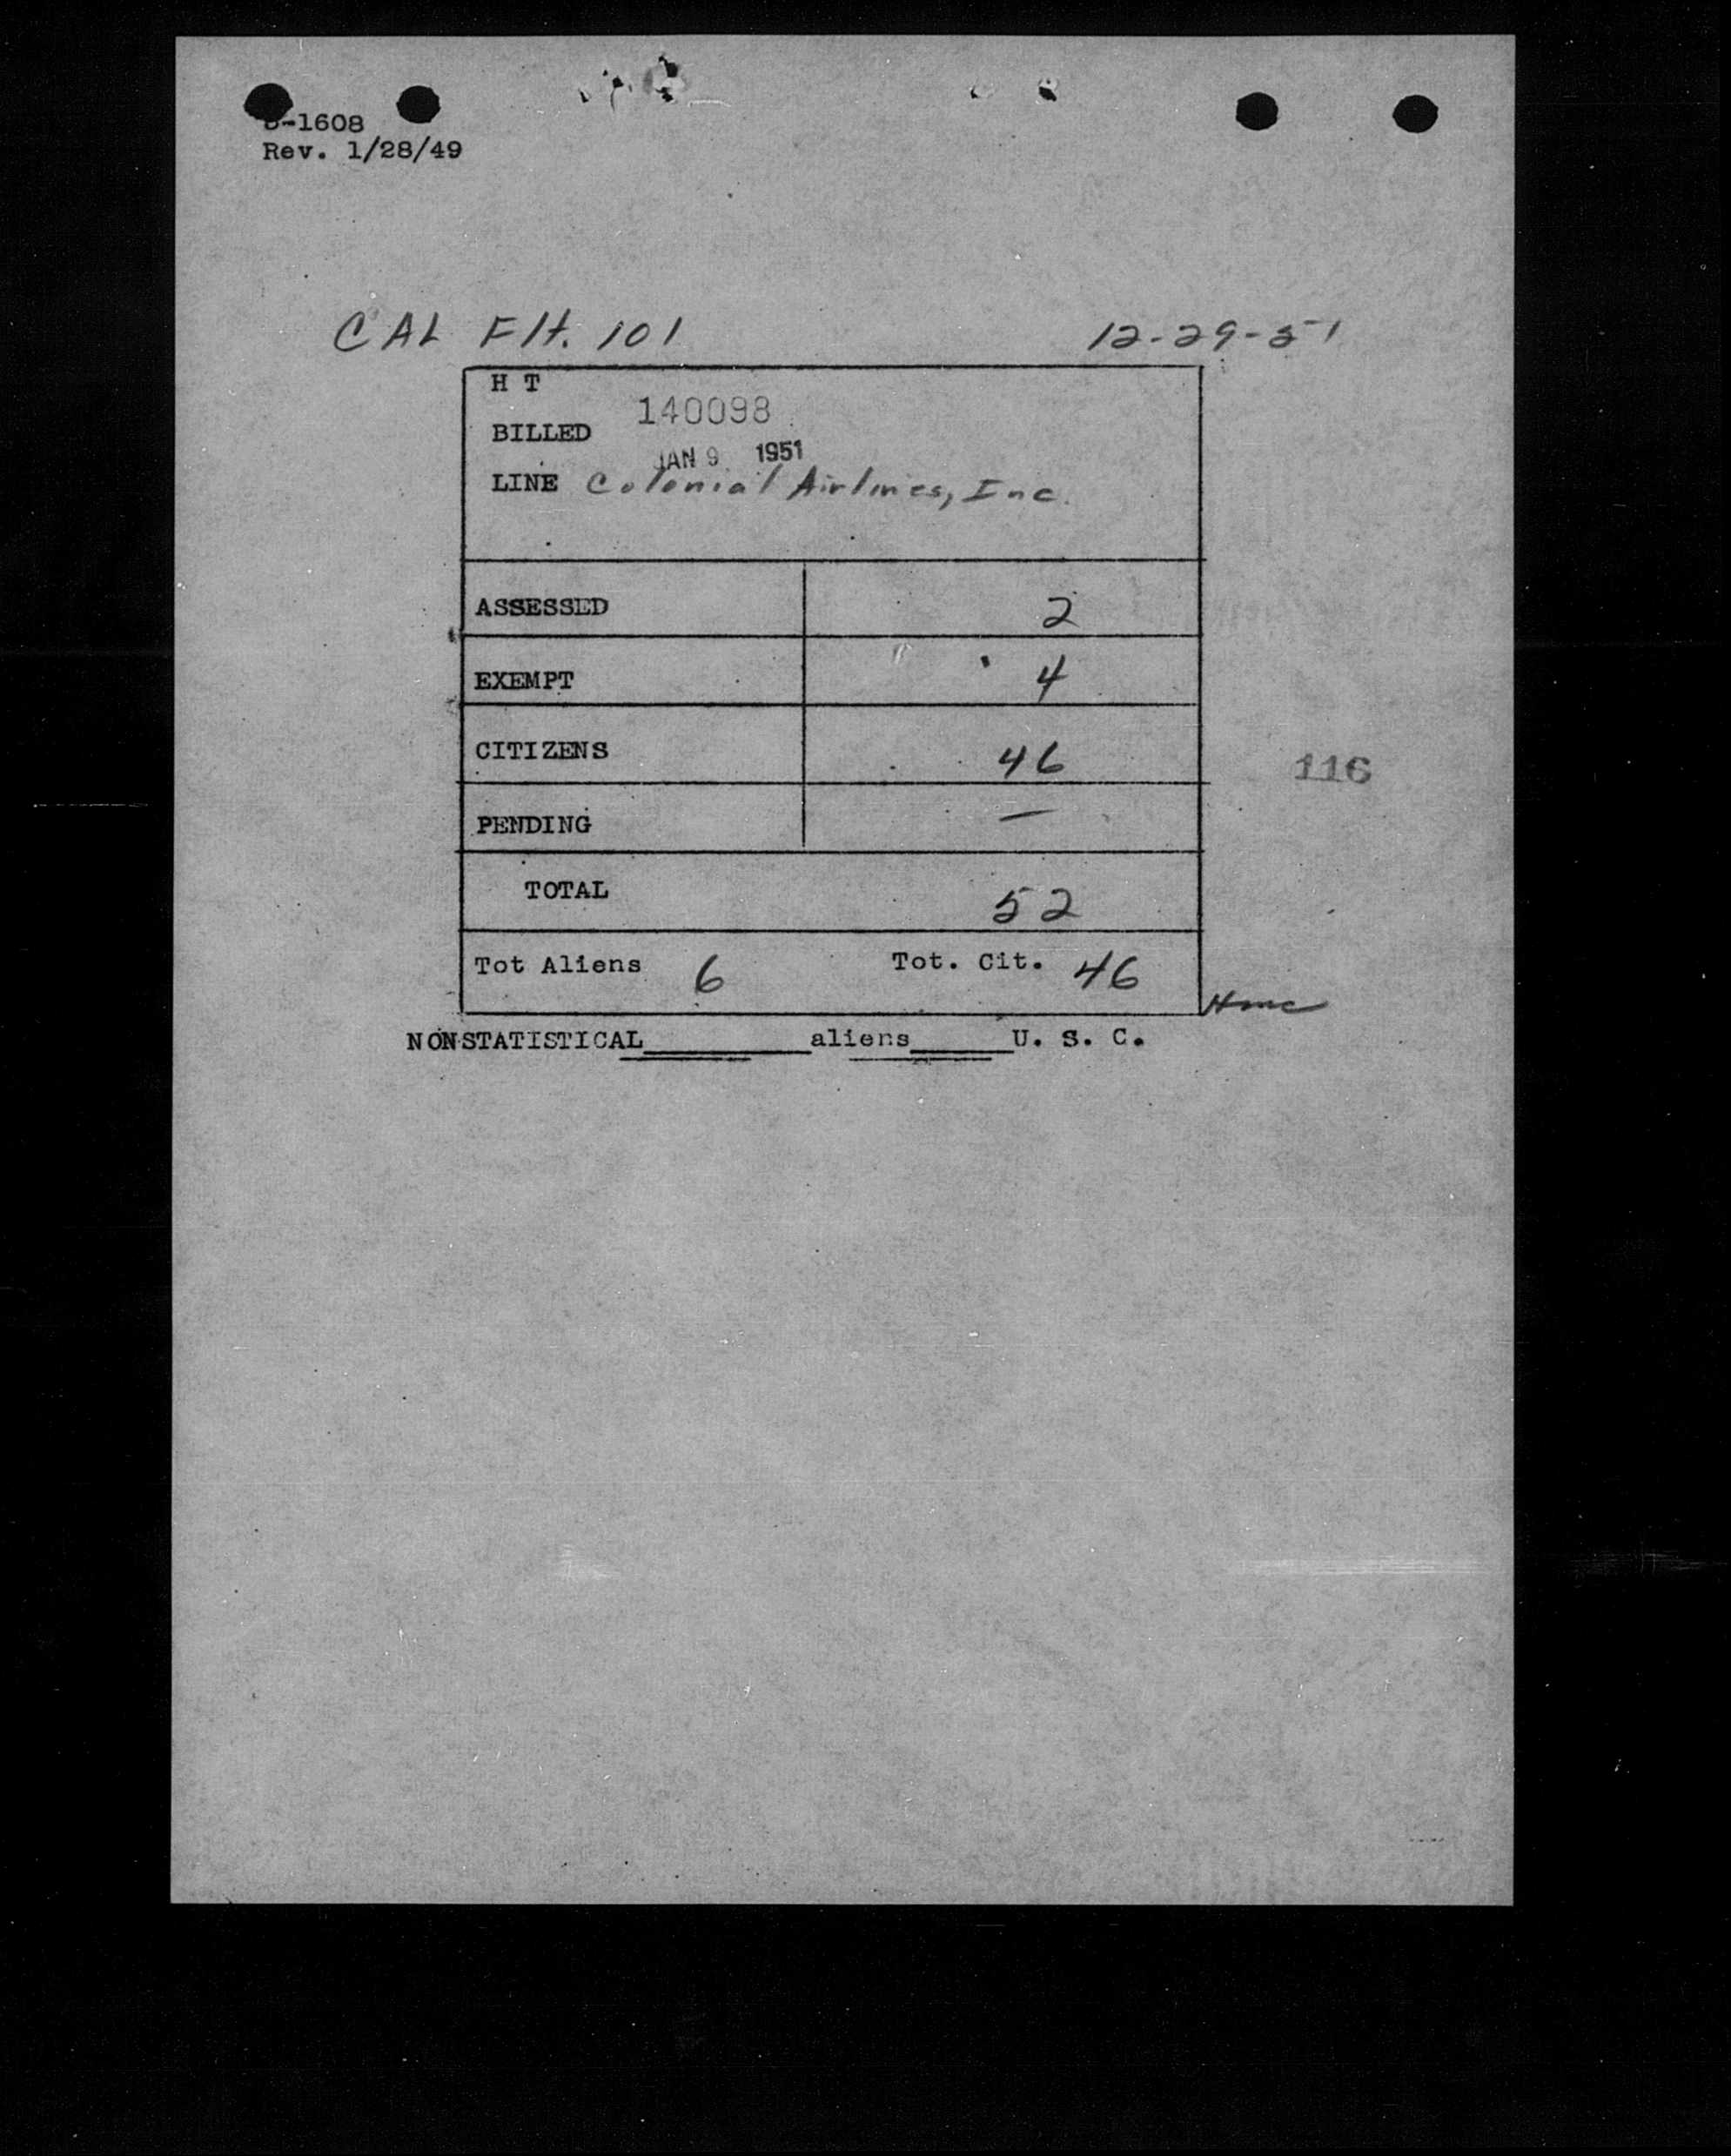 -1608
Rev. 1/28/49
CAL Flt. 101 12-29-51
H T
140098
BILLED
JAN 9 1951
LINE Colonial Airlines, Inc.
ASSESSED 2
EXEMPT 4
CITIZENS 46
116
PENDING —
TOTAL 52
Tot Aliens 6 Tot. Cit. 46
NONSTATISTICAL__________aliens______U. S. C.